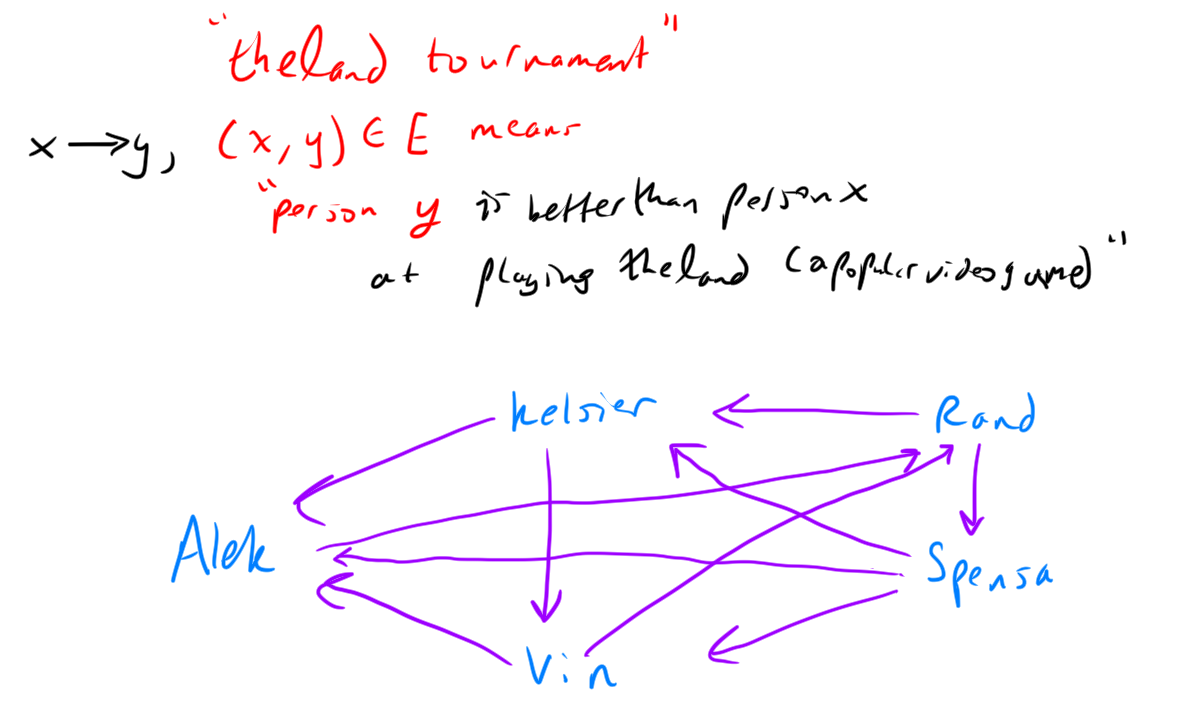 "theland tournament"
x→y, (x,y) ∈ E means
"person y is better than person x
at playing theland (a popular video game)"
Kelsier Rand
Alek Spensa
Vin